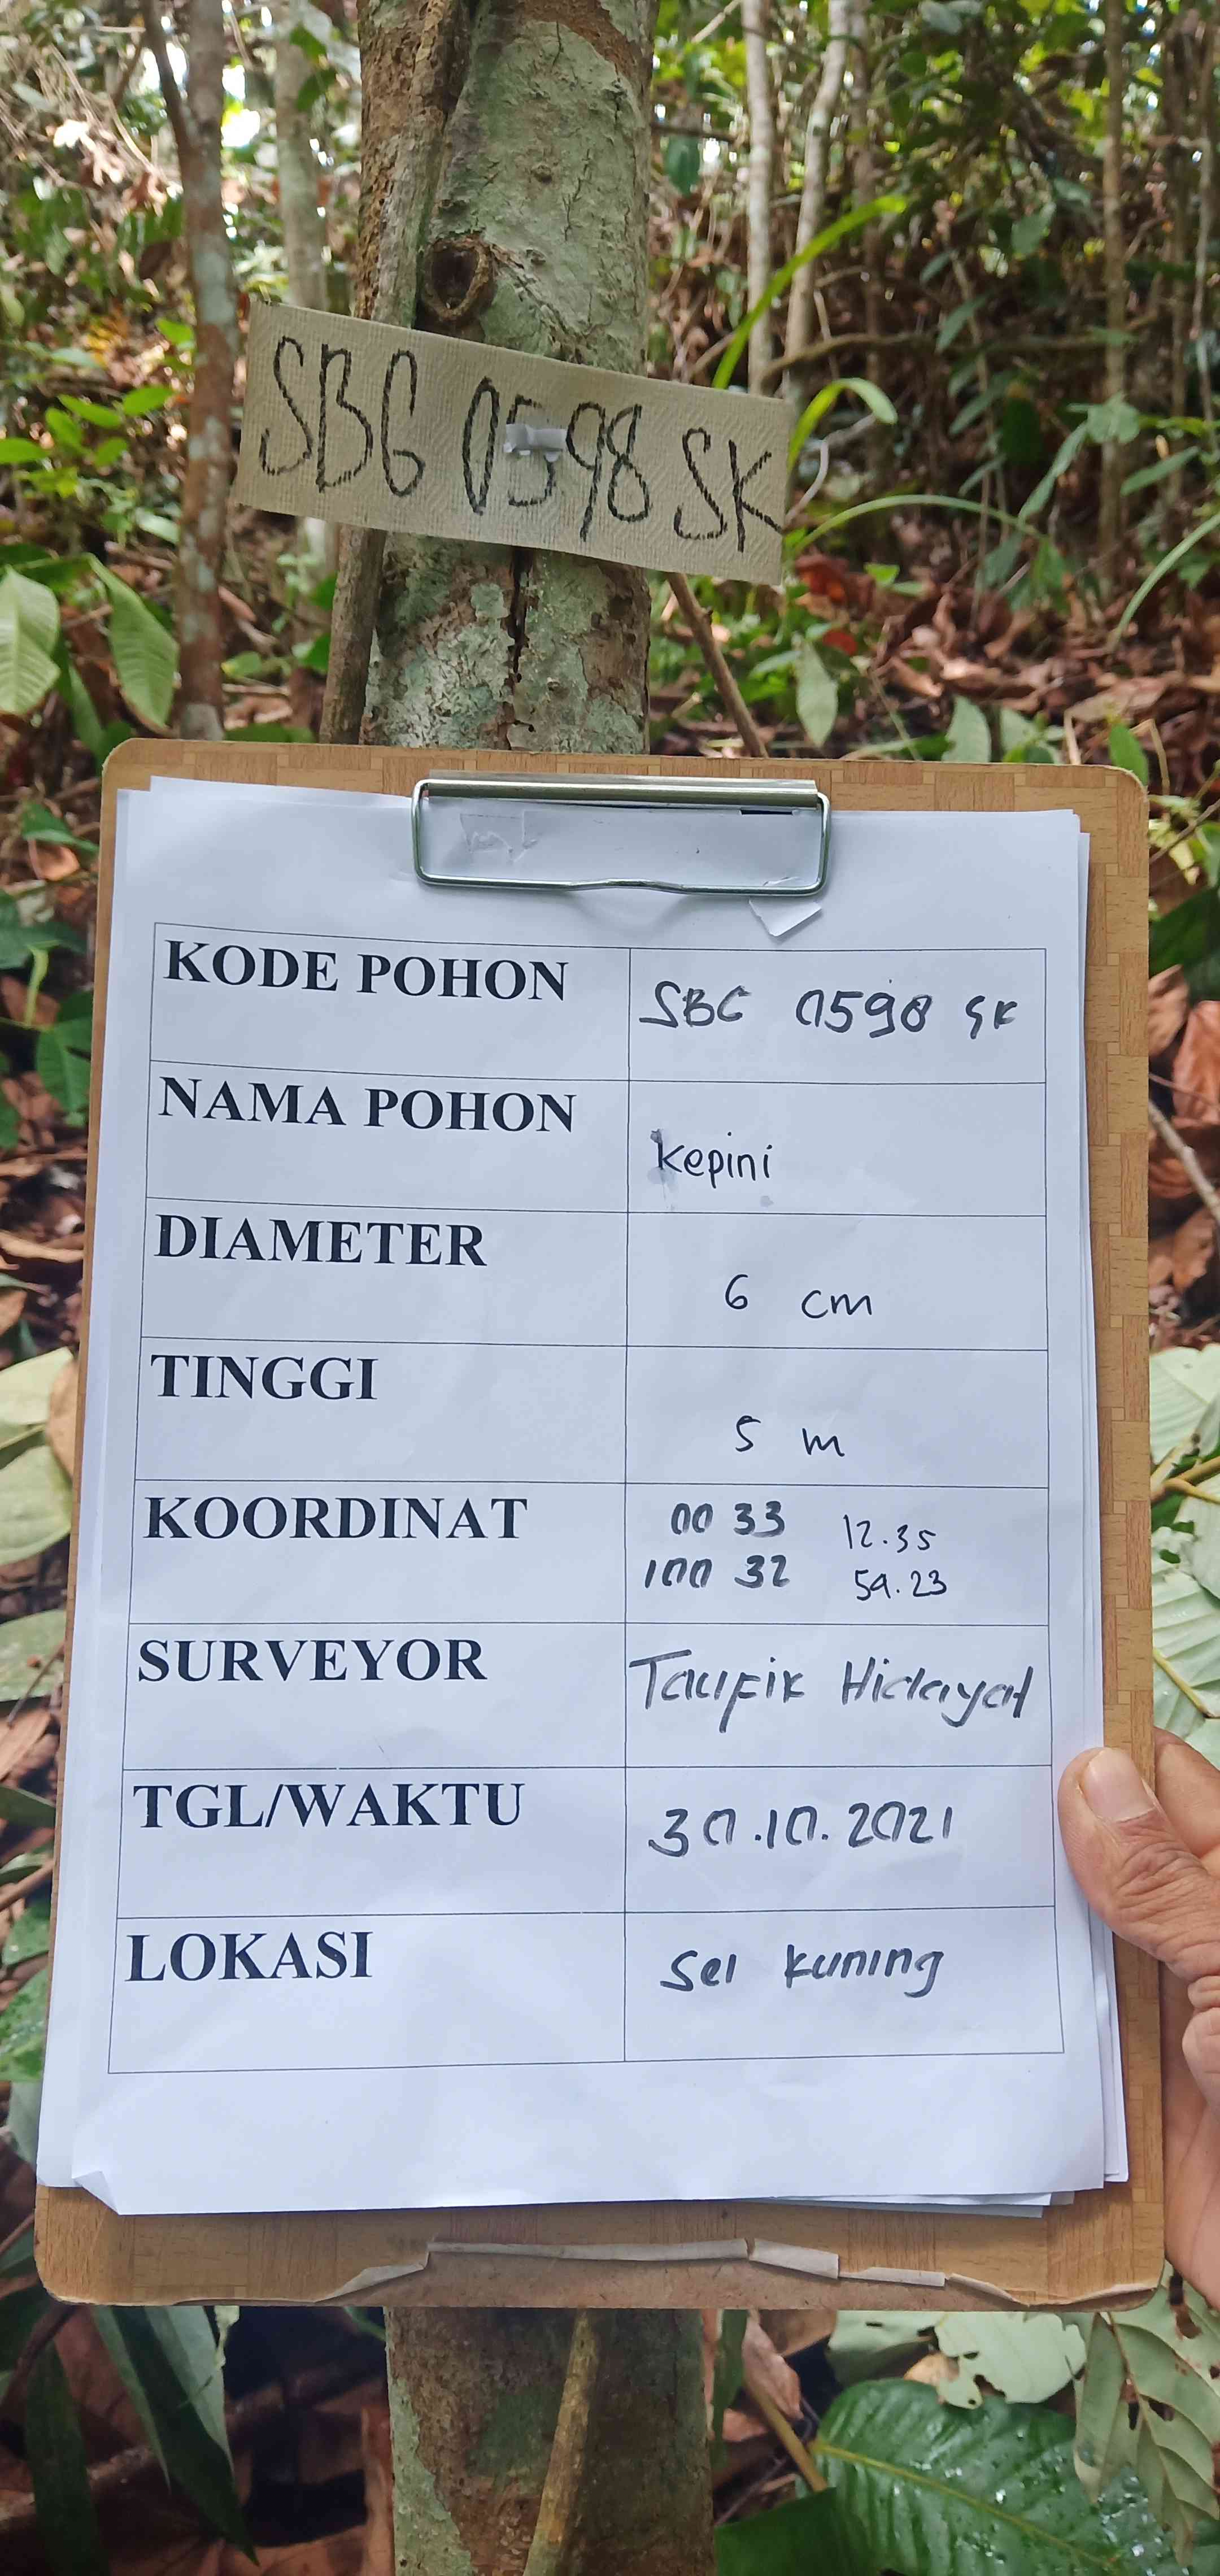 SBG 0598 SK
KODE POHON SBG 0598 SK
NAMA POHON kepini
DIAMETER 6 cm
TINGGI 5 m
KOORDINAT 00 33 12.35
100 32 59.23
SURVEYOR Taufik Hidayat
TGL/WAKTU 30.10.2021
LOKASI Sei kuning